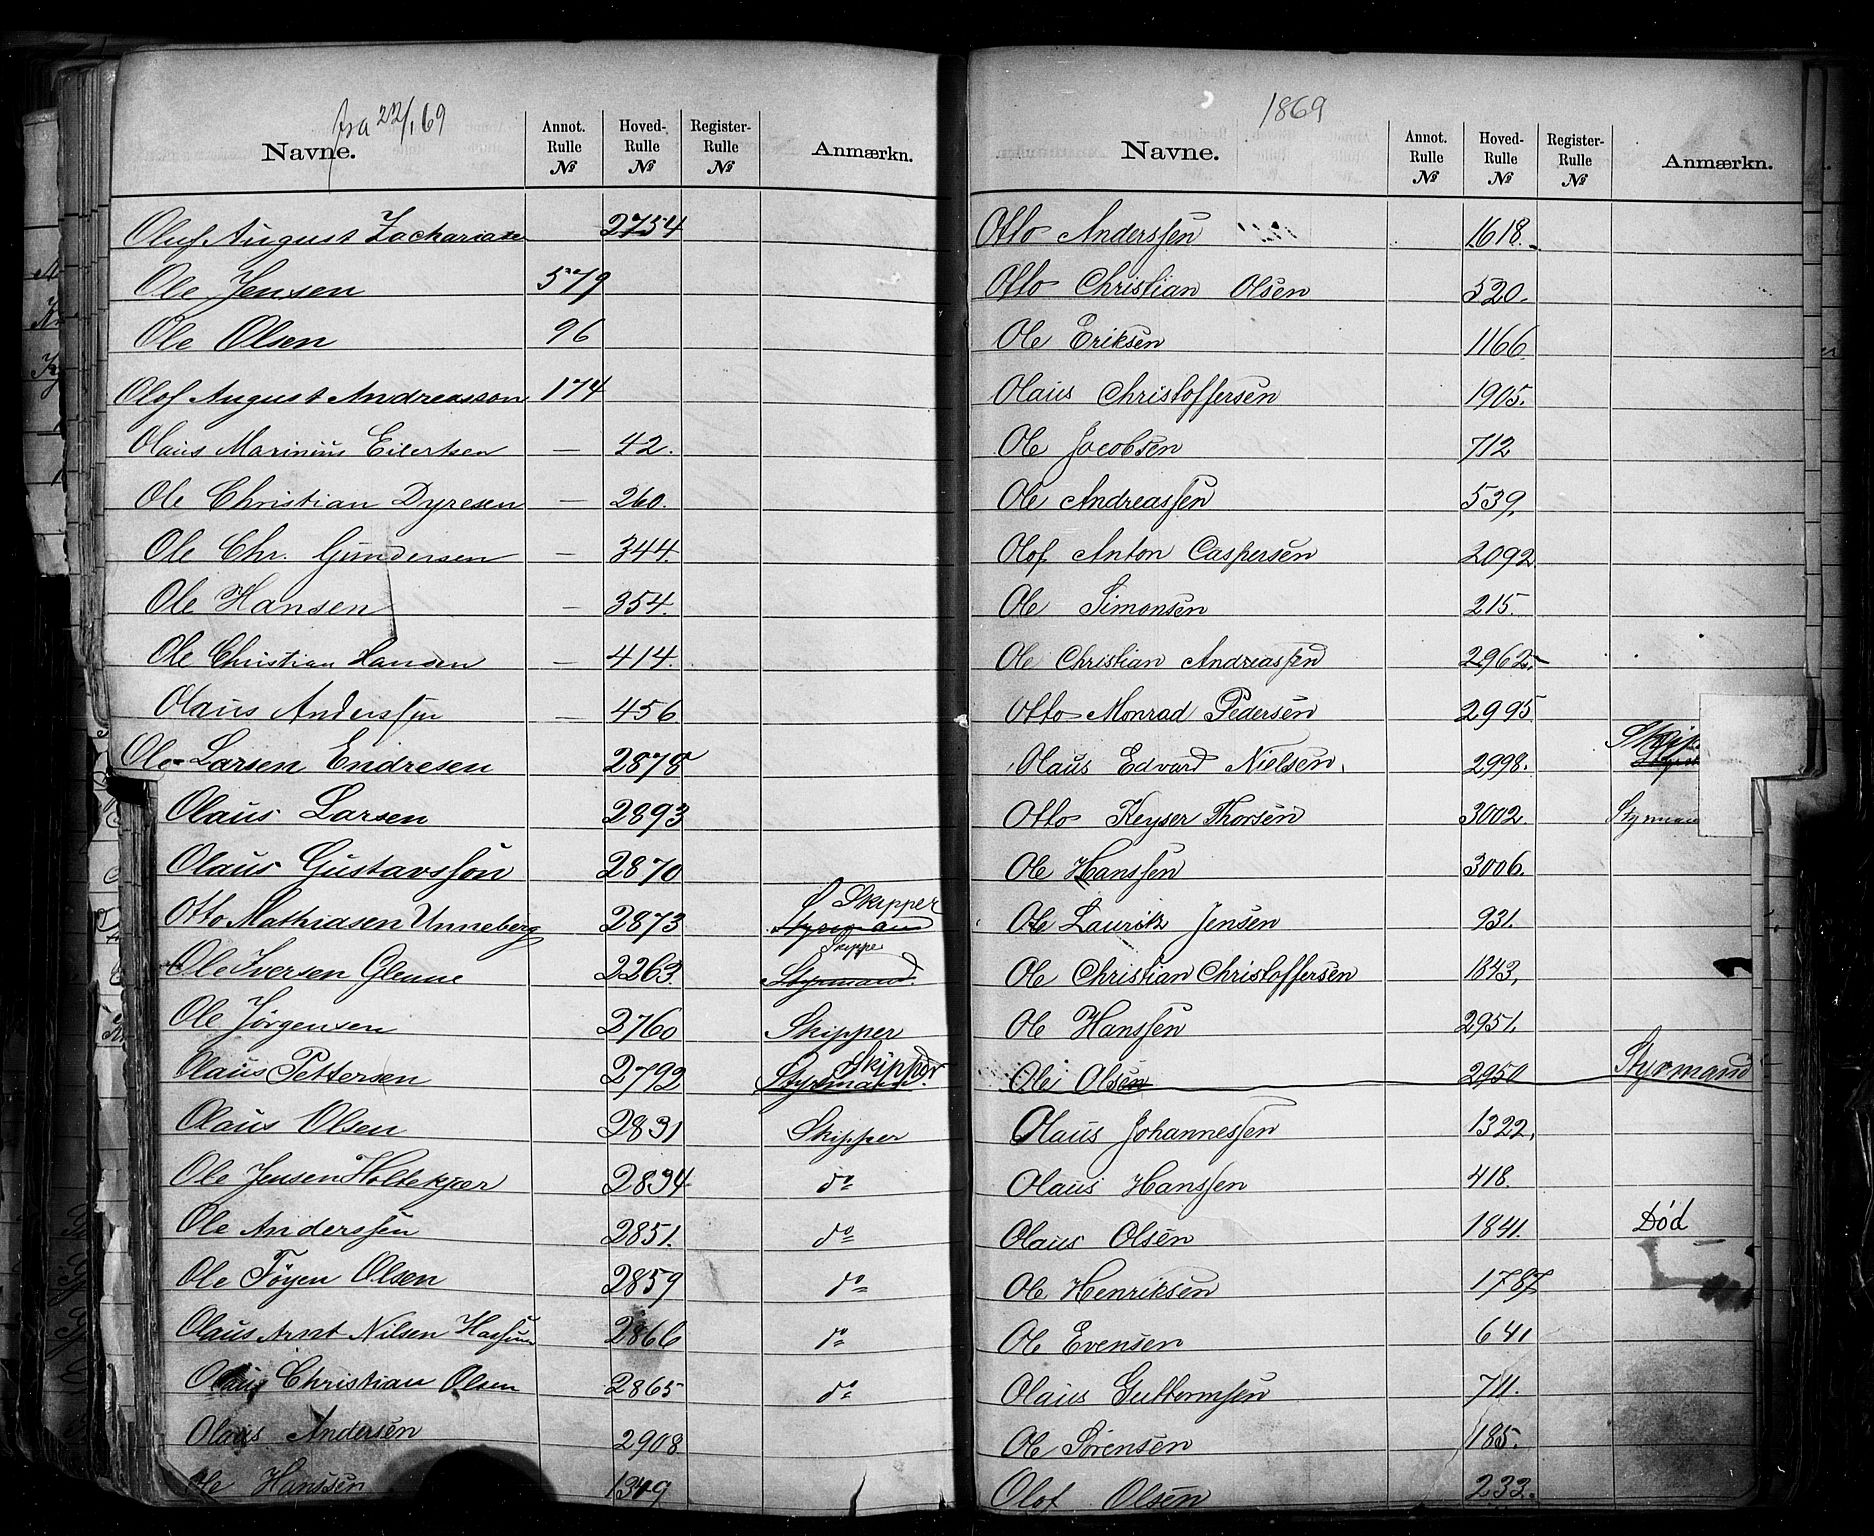 fra 22/1 69
Navne. Annot. Rulle № Hoved-Rulle № Register-Rulle № Anmærkn.
Oluf August Zachariasen 2754
Ole Jensen 579
Ole Olsen 96
Olof August Andreasson 174
Olaus Marinius Eilertsen — 42.
Ole Christian Dyresen — 260.
Ole Chr. Gundersen — 344.
Ole Hansen — 354.
Ole Christian Hansen — 414.
Olaus Anderssen — 456
Ole Larsen Endresen 2878
Olaus Larsen 2893
Olaus Gustavsson 2870
Otto Mathiasen Unneberg 2873 Skipper Styrmand
Ole Iversen Glenne 2263. Skipper Styrmand.
Ole Jørgensen 2760 Skipper
Olaus Pettersen 2792 Skipper Styrmand
Olaus Olsen 2831 Skipper
Ole Jensen Holtekjær 2834. do
Ole Anderssen 2851. do
Ole Føyen Olsen 2859 do
Olaus Arnt Nilsen 2866 do
Olaus Christian Olsen 2865 do
Olaus Andersén 2908
Ole Hanssén 1349
1869
Navne. Annot. Rulle № Hoved-Rulle № Register-Rulle № Anmærkn.
Otto Anderssen 1618.
Otto Christian Olsen 520.
Ole Eriksen 1166
Olaus Christoffersen 1905.
Ole Jacobsen 712
Ole Andreassen 539.
Olof Anton Caspersen 2092
Ole Simonsen 215.
Ole Christian Andreassen 2962.
Otto Monrad Pedersen 2995
Olaus Edvard Nielsen. 2998. Skip
Otto Keyser Thorsen 3002. Styrman
Ole Hanssen 3006.
Ole Lauritz Jensen 931.
Ole Christian Christoffersen 1843.
Ole Hanssen 2951.
Ole Olsen 2950 Styrmand
Olaus Johannessen 1322.
Olaus Hanssen 418.
Olaus Olsen 1841. Død
Ole Henriksen 1787
Ole Evensen 641
Olaus Guttormsen 711.
Ole Sørensen 185.
Olof Olsen 232.